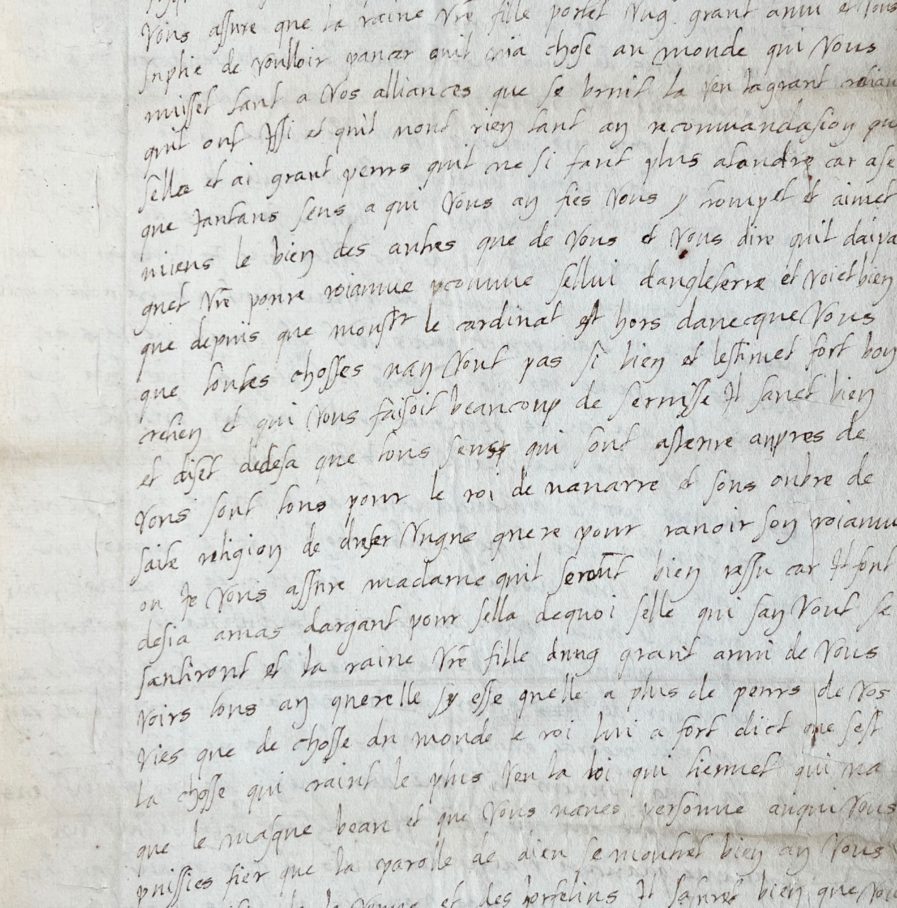 Vous assure que la raine Vre fille portet Vng grant anui et Vous
suplie de Voulloir panser quil nia chose au monde qui Vous
nuisset tant a Vos alliances que se bruit la Veu la grant
quil ont Isi et quil nont rien tant an recommandasion que
sella et ai grant peurs quil ne si fant plus atandre car
que tantans sens a qui Vous an fies Vous y trompet et aimet
miens le bien des autres que de Vous et Vous dire quil
gnet Vre poure roiaume comme sellui dangleterre et Voiet bien
que depuis que monsr le cardinal est hors danecque Vous
que toutes choses nan Vont pas si bien et lestimet fort bon
cretien et qui Vous faisoit beaucoup de seruisse Il sauet bien
et diset dedesa que tous senss qui sont asteure aupres de
Vous sont tous pour le roi de nauarre et sous onbre de
saite religion de dreser Vugne guere pour rauoir son roiaume
ou Je Vous assure madame quil seront bien ressu car Il font
desia amas dargant pour sella dequoi selle qui san Vont se
santiront et la raine Vre fille dung grant anui de Vous
Voirs tous an querelle sy esse quelle a plus de peurs de Vos
Vies que de chosse du monde le roi lui a fort dict que sest
la chosse qui craint le plus Veu la loi qui tiennet qui na
que le masque beau et que Vous naues personne anqui Vous
puissies fier que la parolle de dieu se montret bien an Vous
et des Il sauret bien que